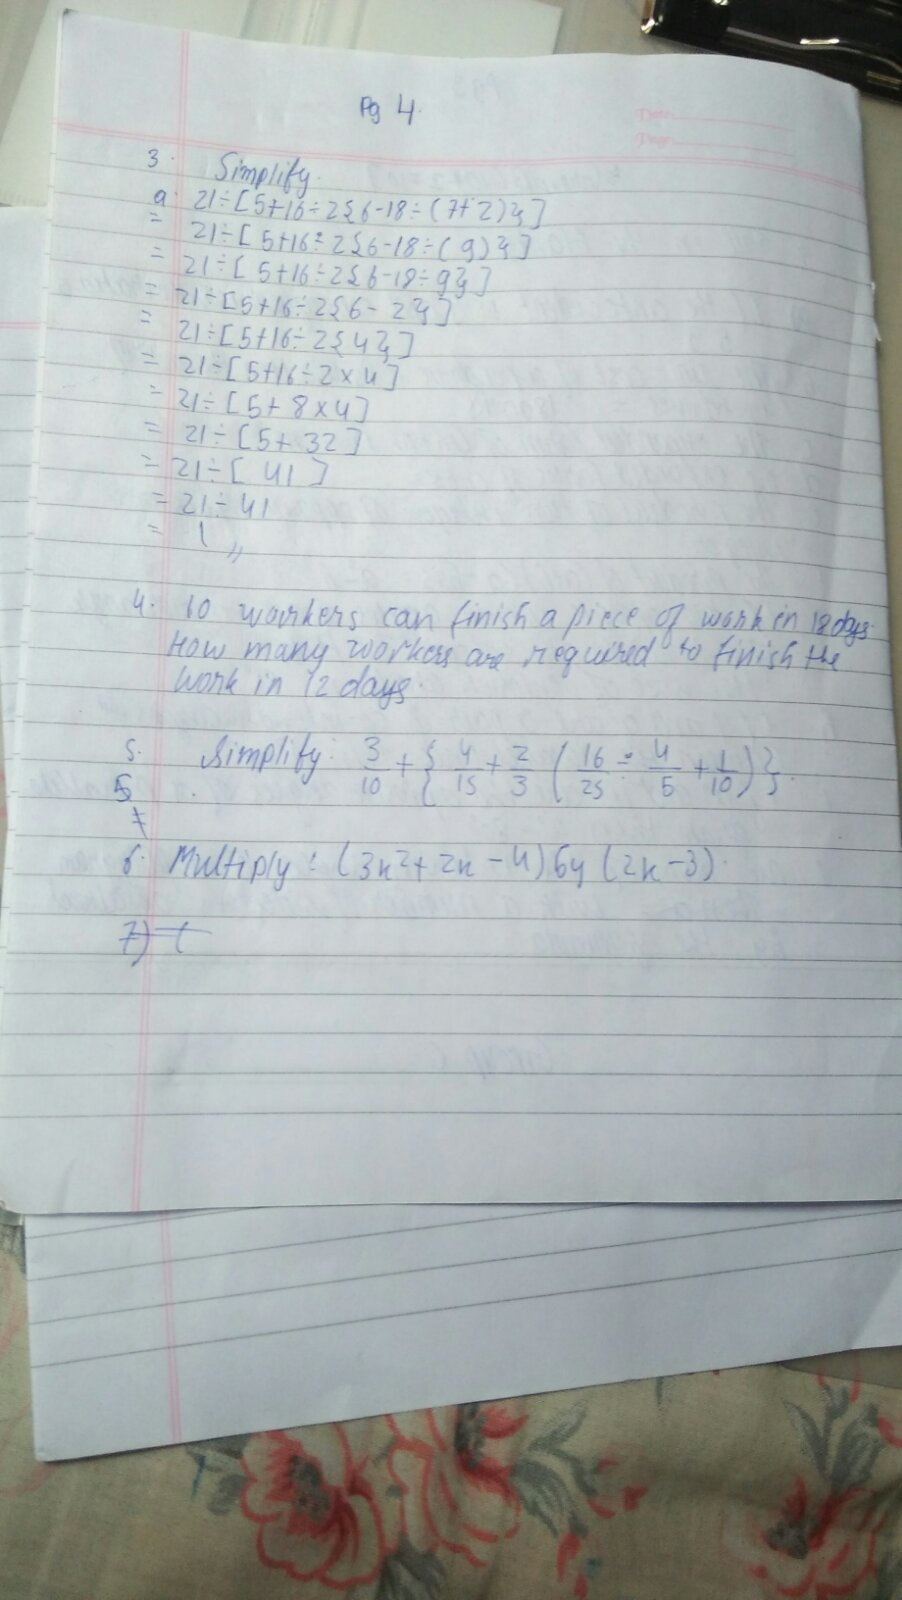 Pg 4.
Date
Page
3. Simplify.
a. 21÷[5+16÷2{6-18÷(7+2)}]
= 21÷[5+16÷2{6-18÷(9)}]
= 21÷[5+16÷2{6-18÷9}]
= 21÷[5+16÷2{6-2}]
= 21÷[5+16÷2{4}]
= 21÷[5+16÷2×4]
= 21÷[5+8×4]
= 21÷[5+32]
= 21÷[41]
= 21÷41
= 1 //
4. 10 workers can finish a piece of work in 18 days.
How many workers are required to finish the
work in 12 days.
5. Simplify: 3/10 + { 4/15 + 2/3 ( 16/25 ÷ 4/5 + 1/10 ) }.
5
6. Multiply: (3x²+2x-4) by (2x-3).
7)